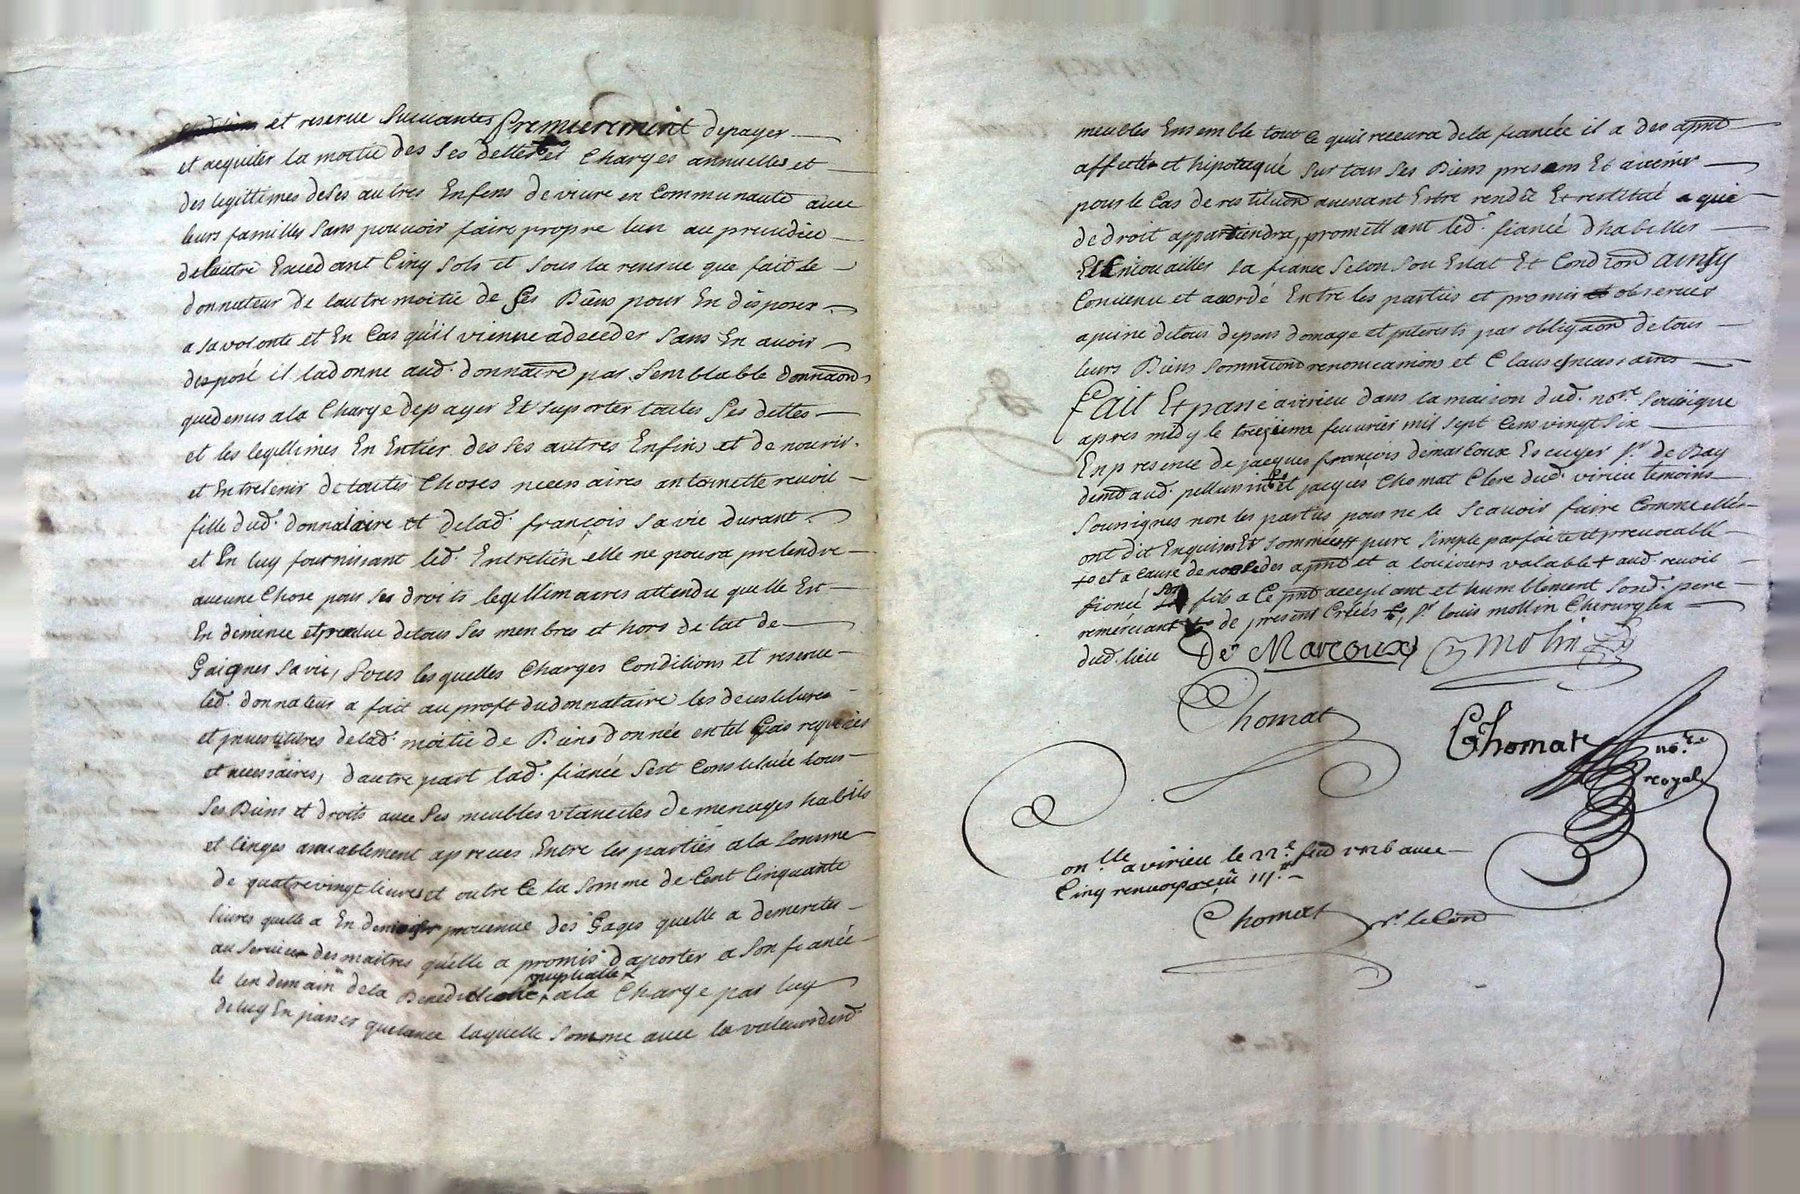 et reserve suivantes premierement depayer
et acquiter la moitié des ses dettes et charges annuelles et
des legittimes deses autres Enfens de vivre en communauté avec
leurs familles sans pouvoir faire propre lun au preiudice
delautre Excedant Cinq sols et sous la reserve que fait le
donnateur de lautre moitié de ses Biens pour En disposer
a sa volonté et En cas quil vienne adeceder sans En avoir
desposé il ladonne aud. donnatre par semblable donnaon
quedenus ala Charge depayer Et suporter toutes ses dettes
et les legittimes En Entier des ses autres Enfens et de nourir
et Entretenir detoutes Choses necessaires antoinette revoil
fille dud. donnataire et delad. françois sa vie durant
et En luy fournissant led. Entretien elle ne poura pretendre
aucune Chose pour ses droits legittimaires attendu quelle Est
En demence et perdue detous ses menbres et hors de tat de
Gaigner sa vie, sous lesquelles Charges Conditions et reserve
led. donnateur a fait au profit dudonnataire les devestitures
et jnvestitures delad. moitié de Biens donnée en tel Cas requises
et necessaires, dautre part lad. fiancée sest Constituée tous
ses Biens et droits avec ses meubles vtancilles demenages habits
et linges amiablement apreciés Entre les parties ala somme
de quatrevingt livres et outre Ce la somme de Cent Cinquante
livres quelle a En deniers provenue des Gages quelle a demerités
au service des maitres quelle a promis daporter a son fiancé
le lendemain dela Benediction nuptialle ala Charge par luy
deluy En passer quitance laquelle somme avec la valeur desd.
meubles Ensemble tout Ce quil recevra dela fiancée il a des apnt
affecté et hipotequé sur tous ses Biens presens Et avenir
pour le Cas de restituon avenant Estre rendu Et restitué a qui
de droit appartiendra, promettant led. fiancé dhabiller
Et Enjouailler sa fiancée selon son Estat Et Condion ainsy
Convenu et acordé Entre les parties et promis observer
apeine detous depens domage et jnterests par obligaon detous
leurs Biens renonciations et Clauses necessaires
fait Et passé avirieu dans la maison dud. nore soussigné
apres midy le treizieme feuvrier mil sept Cens vingt six
En presence de jacques françois demarcoux Escuyer sr de Bay
demt aud. pellussin et jacques Chomat Clerc dud. virieu temoins
soussignés non les parties pour ne le scavoir faire Comme elles
ont dit Enquises Et sommées pure simple parfaite et jrrevocable
et a Cause de des apnt et a toujours valable aud. revoil
fiancé son fils a Ce pnt acceptant et humblement sond. pere
remerciant de present Créés sr louis mollin Chirurgien
dud. lieu De Marcoux Molin
Chomat
Chomat nore
royal
onlle avirieu le 22e feud 1726 avec
Cinq renvoys reçu
Chomat